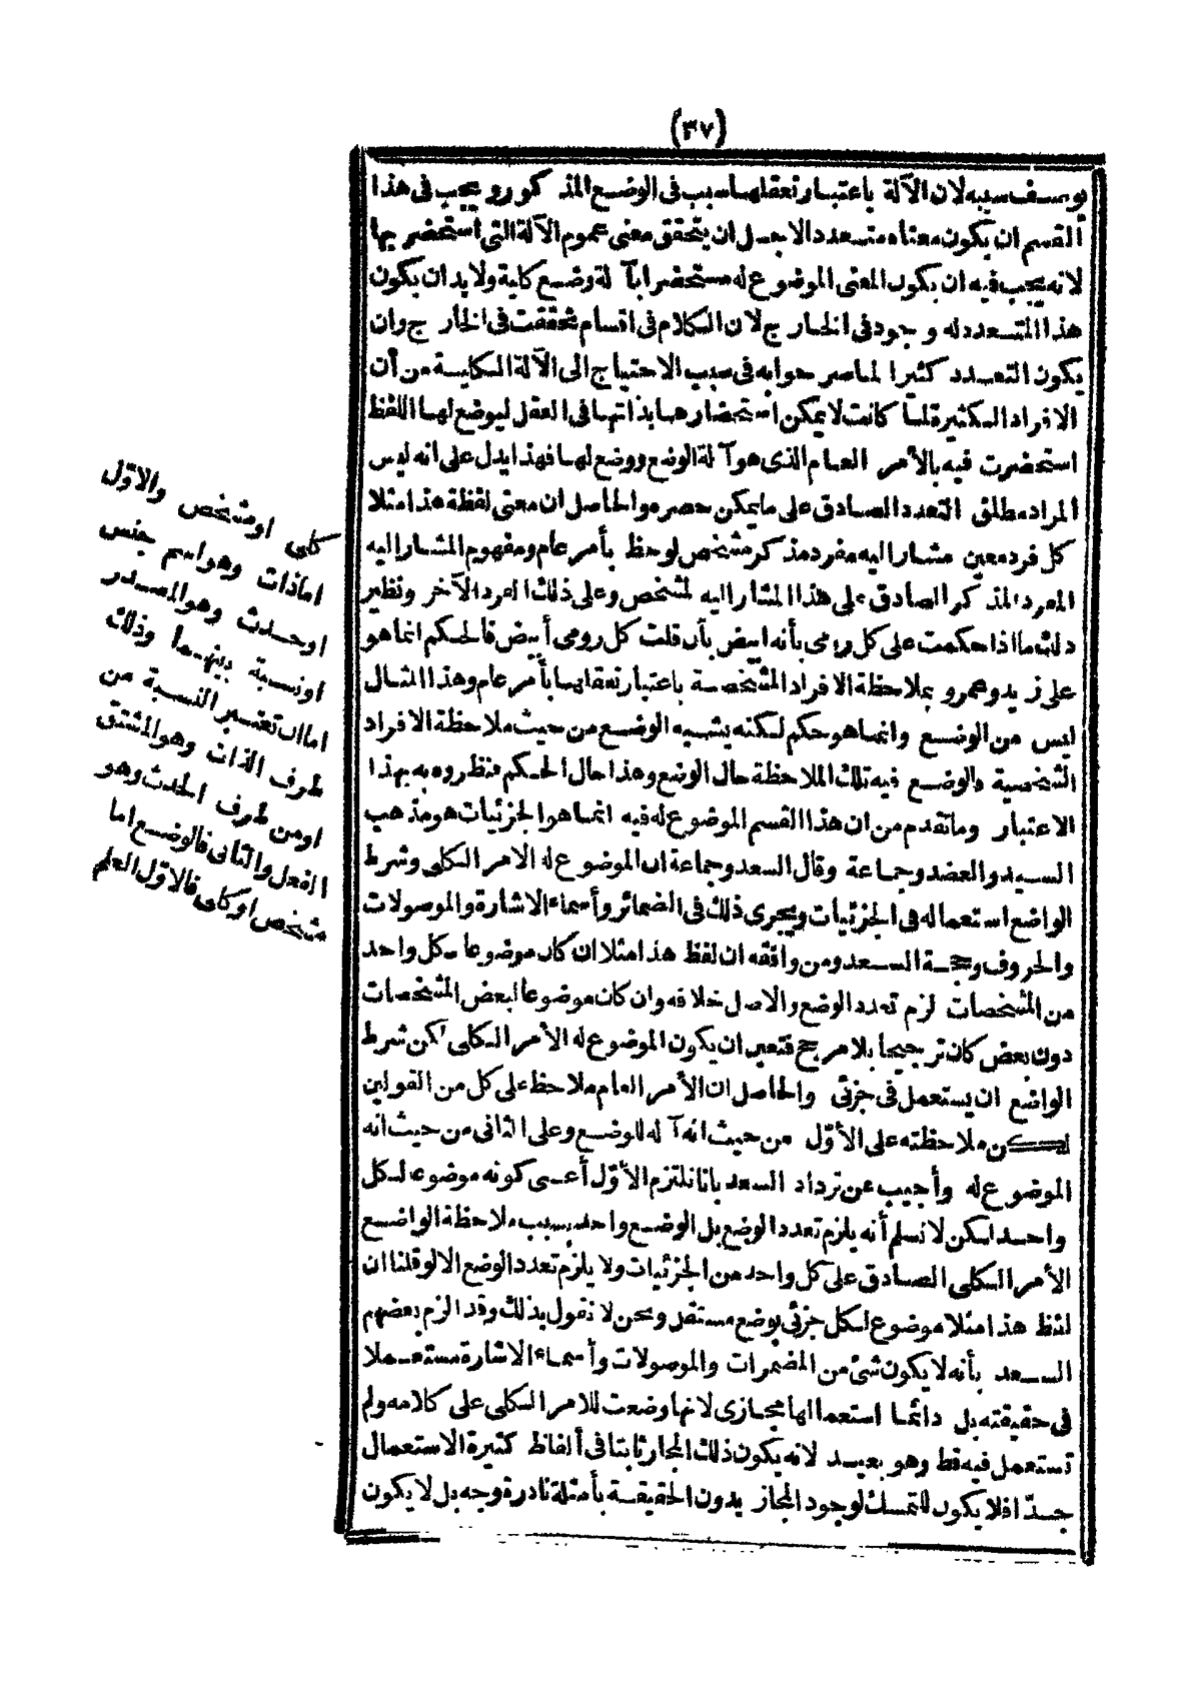 (٣٧)
بوصف سببه لان الآلة باعتبار تعقلها سبب فى الوضع المذكور ويجب فى هذا
القسم ان يكون معناه متعددا لاجل ان يتحقق معنى عموم الآلة التى استحضر بها
لانه يجب فيه ان يكون المعنى الموضوع له مستحضرا بآلة وضع كلية ولابد ان يكون
هذا المتعدد له وجود فى الخارج لان الكلام فى اقسام تحققت فى الخارج وان
يكون التعدد كثيرا لما صرحوا به فى سبب الاحتياج الى الآلة الكلية من أن
الافراد الكثيرة لما كانت لا يمكن استحضارها بذاتها فى العقل ليوضع لها اللفظ
استحضرت فيه بالأمر العام الذى هو آلة الوضع ووضع لها فهذا يدل على انه ليس
المراد مطلق التعدد الصادق على ما يمكن حصره والحاصل ان معنى لفظة هذا مثلا
كل فرد معين مشار اليه مفرد مذكر مشخص لوحظ بأمر عام ومفهوم المشار اليه
المفرد المذكر الصادق على هذا المشار اليه لمشخص وعلى ذلك الفرد الآخر ونظير
ذلك ما اذا حكمت على كل رومى بأنه ابيض بأن قلت كل رومى أبيض فالحكم انما هو
على زيد وعمرو بملاحظة الافراد المشخصة باعتبار تعقلها بأمر عام وهذا المثال
ليس من الوضع وانما هو حكم لكنه يشبه الوضع من حيث ملاحظة الافراد
الشخصية والوضع فيه تلك الملاحظة حال الوضع وهذا حال الحكم فنظروه به بهذا
الاعتبار وما تقدم من ان هذا القسم الموضوع له فيه انما هو الجزئيات هو مذهب
السيد والعضد وجماعة وقال السعد وجماعة ان الموضوع له الامر الكلى وشرط
الواضع استعماله فى الجزئيات ويجرى ذلك فى الضمائر وأسماء الاشارة والموصولات
والحروف وحجة السعد ومن وافقه ان لفظ هذا مثلا ان كان موضوعا لكل واحد
من المشخصات لزم تعدد الوضع والاصل خلافه وان كان موضوعا لبعض المشخصات
دون بعض كان ترجيحا بلا مرجح فتعين ان يكون الموضوع له الأمر الكلى لكن شرط
الواضع ان يستعمل فى جزئى والحاصل ان الأمر العام ملاحظ على كل من القولين
لكن ملاحظته على الأول من حيث انه آلة للوضع وعلى الثانى من حيث انه
الموضوع له وأجيب عن ترداد السعد بأنا نلتزم الأول أعنى كونه موضوعا لكل
واحد لكن لا نسلم أنه يلزم تعدد الوضع بل الوضع واحد بسبب ملاحظة الواضع
الأمر الكلى الصادق على كل واحد من الجزئيات ولا يلزم تعدد الوضع الا لو قلنا ان
لفظ هذا مثلا موضوع لكل جزئى بوضع مستقل ونحن لا نقول بذلك وقد الزم بعضهم
السعد بأنه لا يكون شئ من المضمرات والموصولات وأسماء الاشارة مستعملا
فى حقيقته بل دائما استعمالها مجازى لانها وضعت للامر الكلى على كلامه ولم
تستعمل فيه قط وهو بعيد لانه يكون ذلك المجاز ثابتا فى ألفاظ كثيرة الاستعمال
جدّا فلا يكون للتمسك لوجود المجاز بدون الحقيقة بأمثلة نادرة وجه بل لا يكون
كلى او مشخص والاوّل
اما ذات وهو اسم جنس
او حدث وهو المصدر
او نسبة بينهما وذلك
اما ان تعتبر النسبة من
طرف الذات وهو المشتق
او من طرف الحدث وهو
الفعل والثانى فالوضع اما
مشخص او كلى فالاوّل العلم